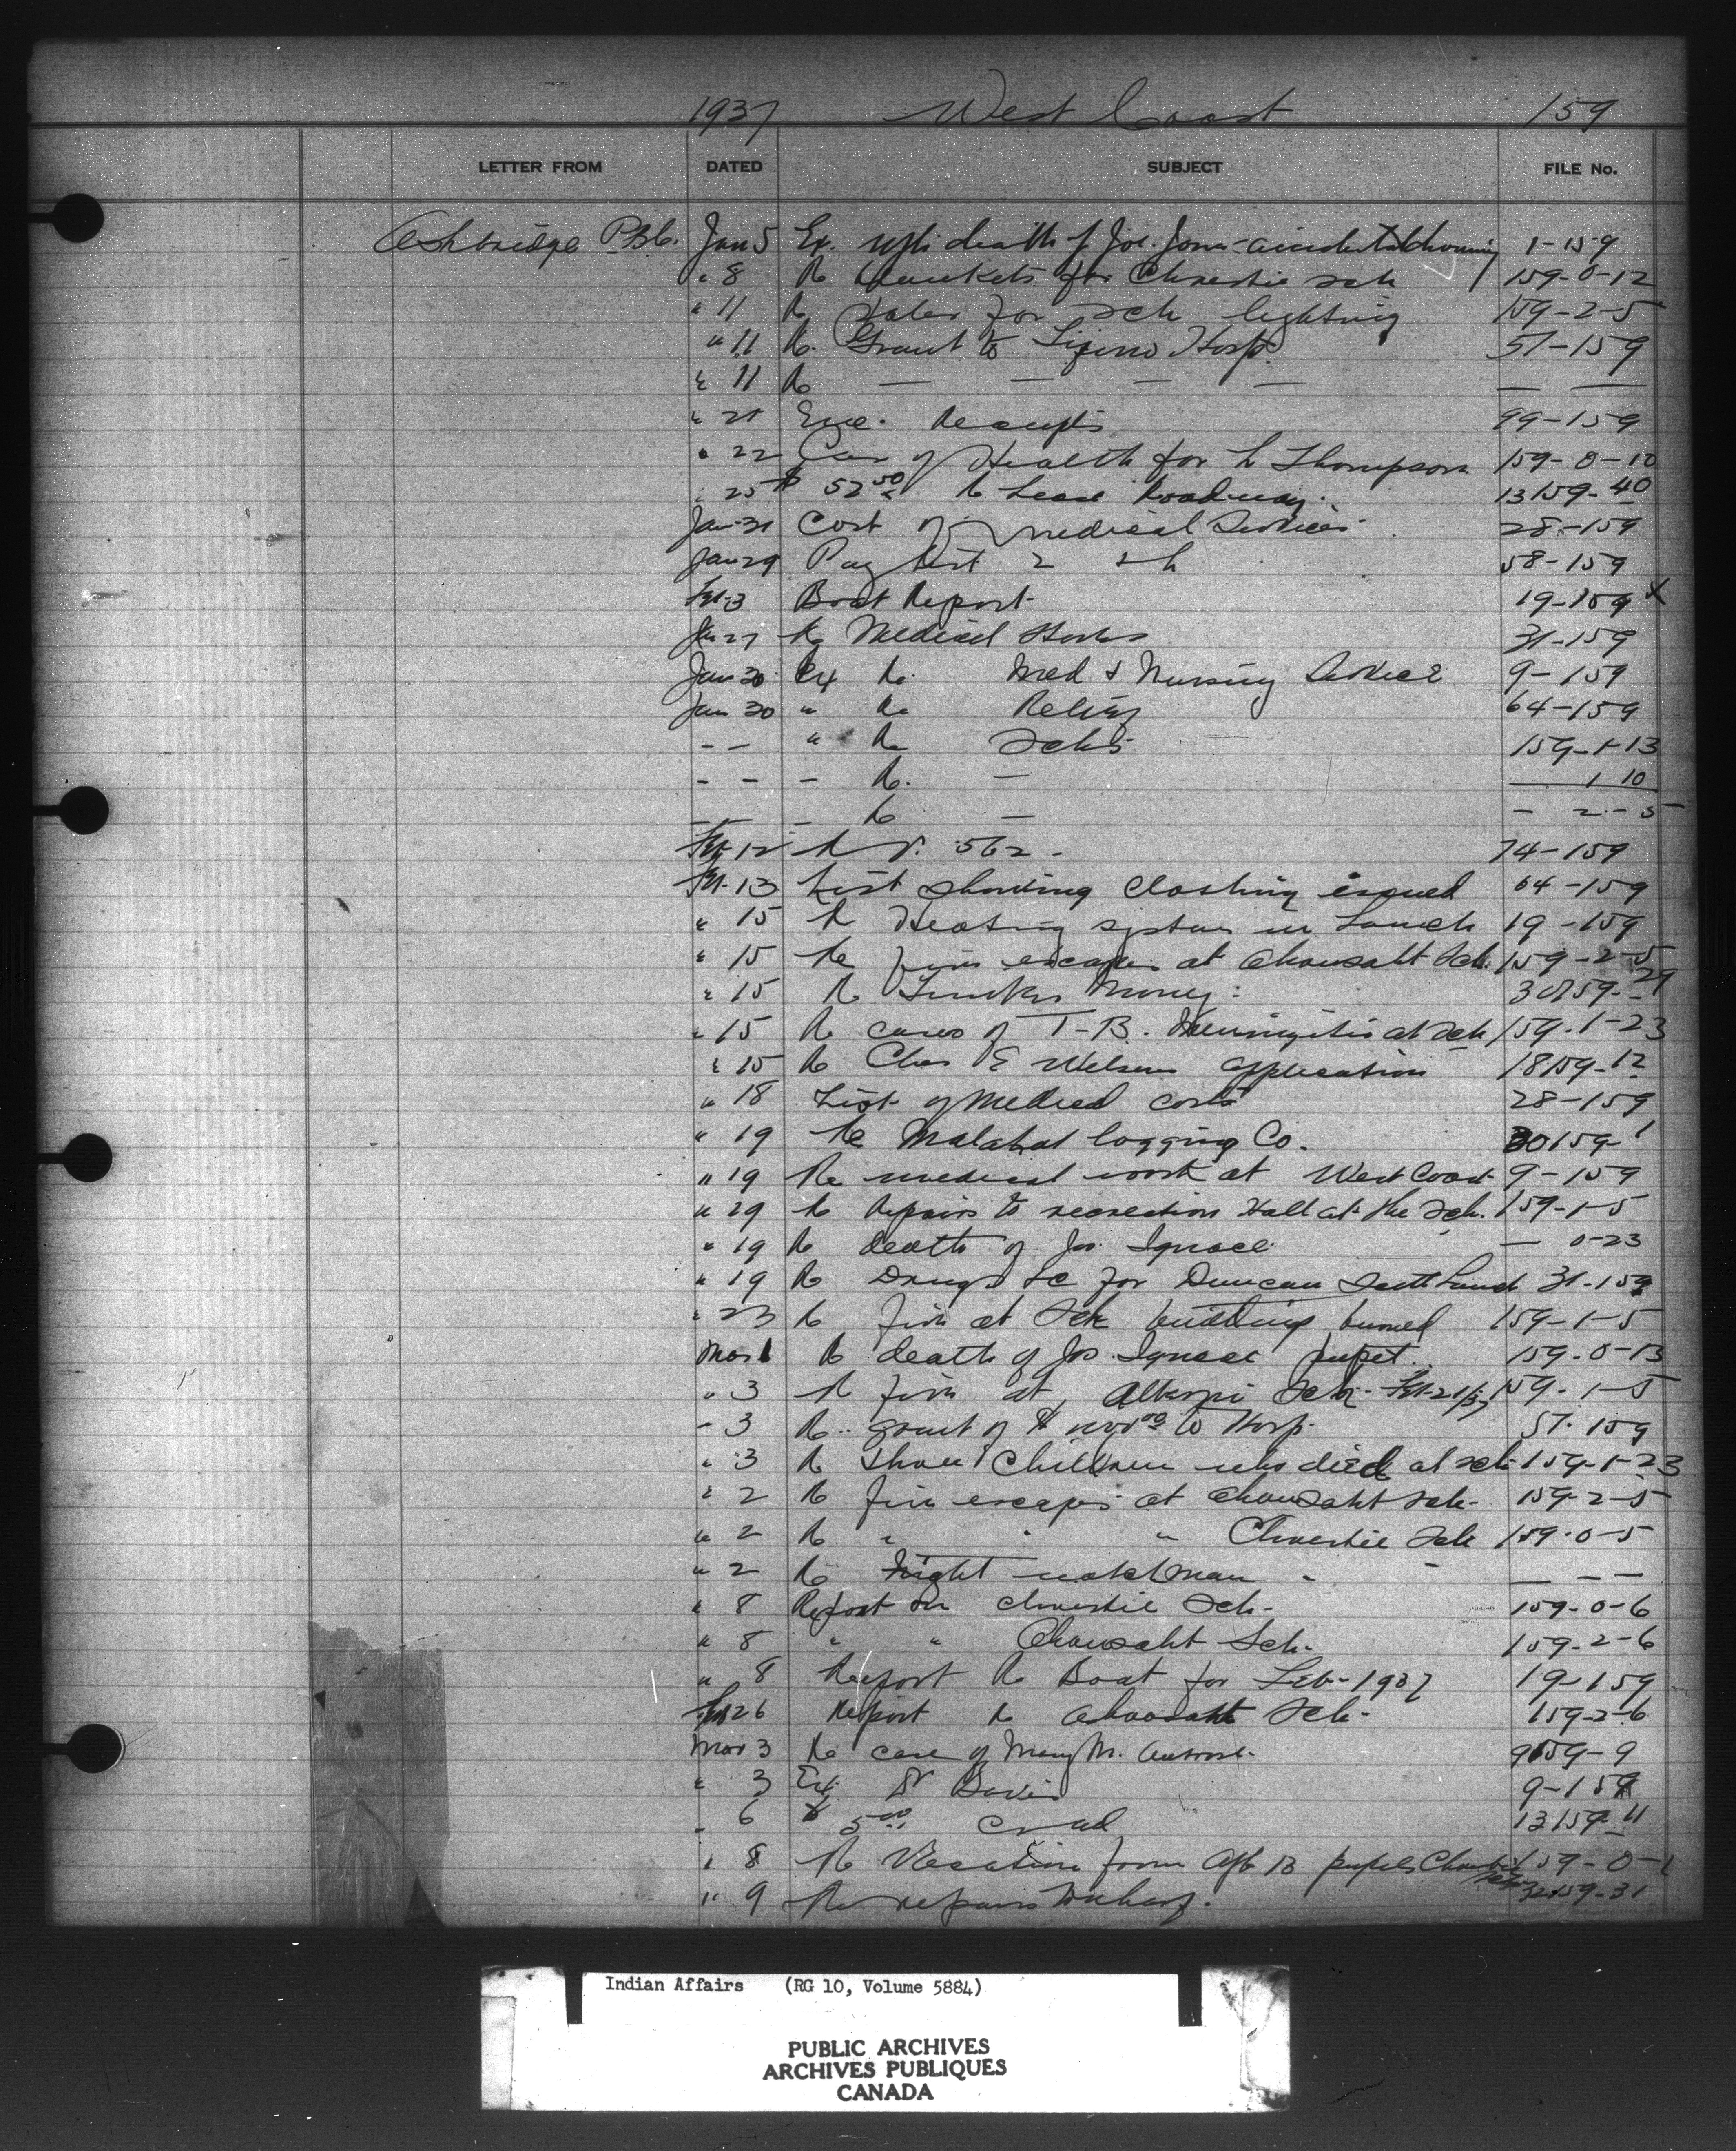 1937 West Coast 159
LETTER FROM DATED SUBJECT FILE No.
Ashbridge P.B. Jan 5 Ex. death of Joe. Jones - accidental drowning 1-159
" 8 Re Blankets for Christie sch 159-0-12
" 11 Re for sch lighting 159-2-5
" 11 Re. Grant to Hosp. 57-159
" 11 Re — — — — — —
" 21 Enc. Receipts 99-159
" 22 of Health for L Thompson 159-0-10
" 25 $ 52 50 Re Lease Roadway. 13159-40
Jan-31 Cost of medical Services 28-159
Jan 29 Pay list 58-159
Feb-3 Boat Report 19-159 x
Jan 27 Re Medical 31-159
Jan 30 Ex Re. Med & Nursing Service 9-159
Jan 30 " Re Relief 64-159
- - " Re Schs 159-1-13
- - - Re. — — 1 10
- - - Re — - 2 - 5
Feb-12 562 - 74-159
Feb-13 List showing clothing issued 64-159
" 15 Re Heating system in Launch 19-159
" 15 Re fire escapes at Ahousaht Sch. 159-2-5
" 15 Re Timber Money. 30159-29
" 15 Re cases of T-B. Meningitis at sch 159-1-23
" 15 Re Chas E Wilson application 18159-12
" 18 List of Medical costs 28-159
" 19 Re Malahat logging Co. 30159-1
" 19 Re medical work at West Coast 9-159
" 29 Re Repairs to recreation Hall at the Sch. 159-1-5
" 19 Re death of Jos. Ignace — 0-23
" 19 Re Drugs &c for Duncan Scott Launch 31-159
" 23 Re fire at Sch building burned 159-1-5
Mar 1 Re death of Jos. Ignace pupil. 159-0-13
" 3 Re fire at Alberni Sch. Feb-21/37 159-1-5
- 3 Re grant of $ to Hosp. 57-159
" 3 Re Three Children who died at sch 159-1-23
" 2 Re fire escapes at Ahousaht sch- 159-2-5
" 2 Re " " " Christie Sch 159-0-5
" 2 Re Night watchman " - — - —
" 8 Report on Christie Sch- 159-0-6
" 8 " " Ahousaht Sch- 159-2-6
" 8 Report Re Boat for Feb-1937 19-159
Feb 26 Report Re Ahousaht Sch- 159-2-6
Mar 3 Re case of Mary M. 9159-9
" 3 Ex. Dr Davis 9-159
- 6 $ 5 00 13159-11
" 8 Re Vacation from pupils Christie 159-0-1
" 9 Re repairs Wharf. 32159-31
Indian Affairs (RG 10, Volume 5884)
PUBLIC ARCHIVES
ARCHIVES PUBLIQUES
CANADA